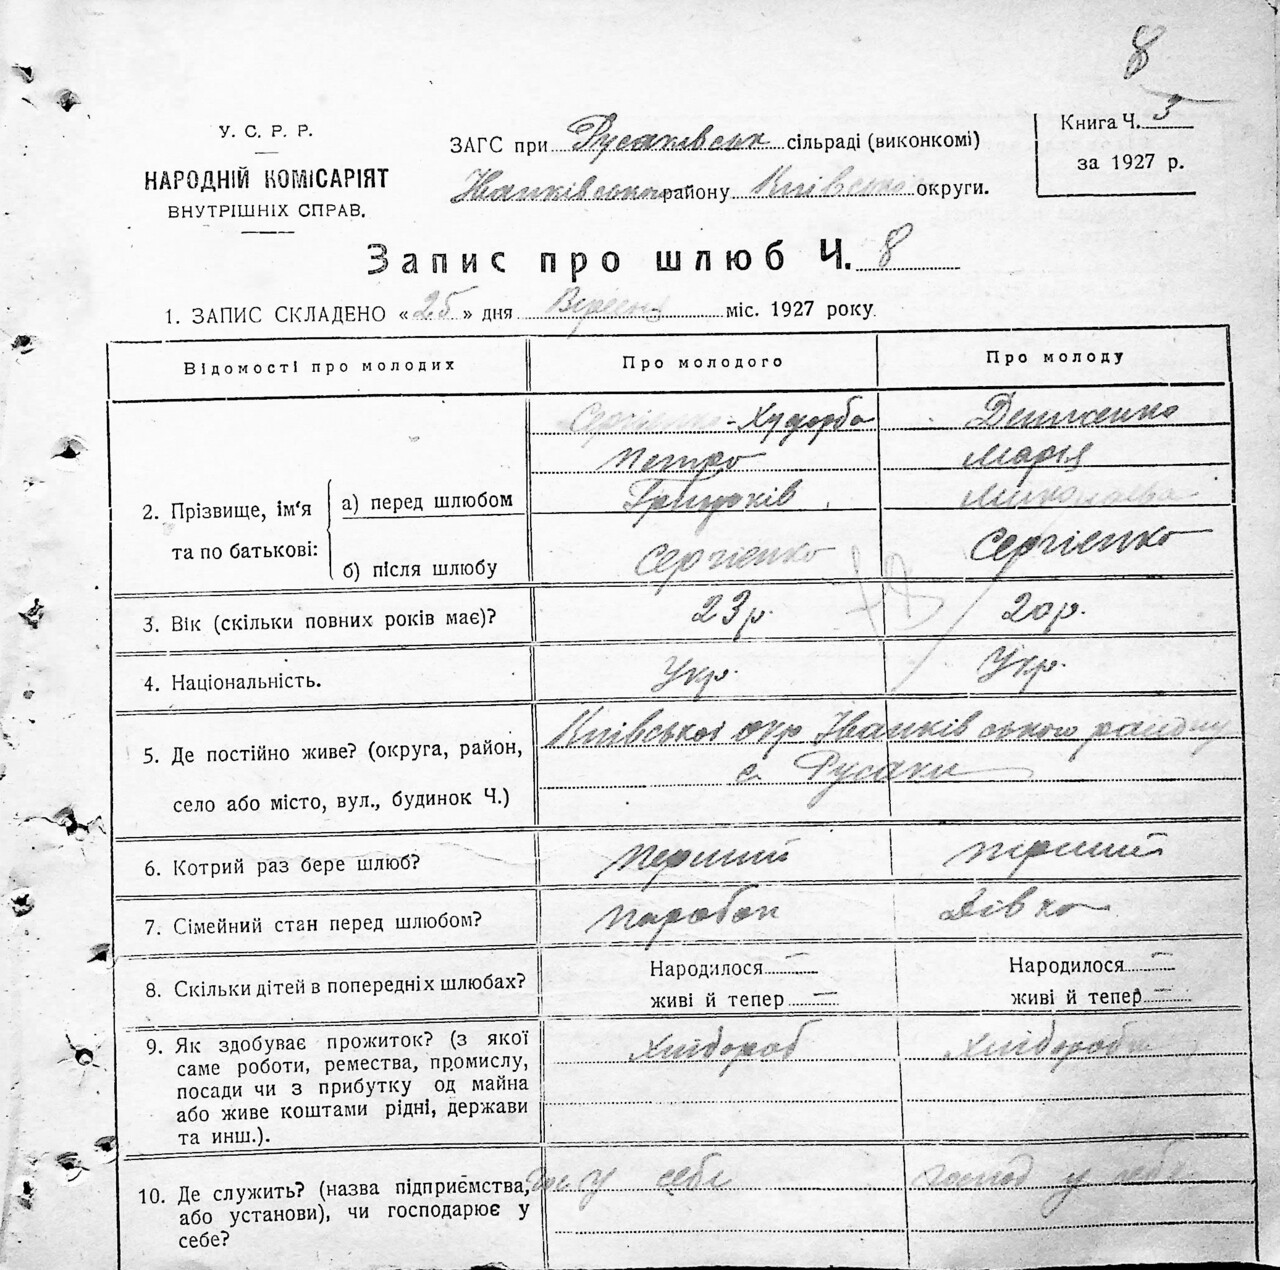 8
У. С. Р. Р.
НАРОДНІЙ КОМІСАРІЯТ
ВНУТРІШНІХ СПРАВ.
ЗАГС при Русаківськ сільраді (виконкомі)
Іванківського району Київської округи.
Книга Ч. 3
за 1927 р.
Запис про шлюб Ч. 8
1. ЗАПИС СКЛАДЕНО «25» дня Вересня міс. 1927 року.
Відомості про молодих
Про молодого
Про молоду
2. Прізвище, ім'я та по батькові:
а) перед шлюбом
Сергієнко-Худорба
Петро
Грицьків
Демченко
Марія
Миколаєва
б) після шлюбу
Сергієнко
Сергієнко
3. Вік (скільки повних років має)?
23 р.
20 р.
4. Національність.
Укр.
Укр.
5. Де постійно живе? (округа, район,
село або місто, вул., будинок Ч.)
Київської окр Іванківського району
с. Русаки
6. Котрий раз бере шлюб?
перший
перший
7. Сімейний стан перед шлюбом?
парубок
Дівка
8. Скільки дітей в попередніх шлюбах?
Народилося —
живі й тепер —
Народилося —
живі й тепер —
9. Як здобуває прожиток? (з якої
саме роботи, ремества, промислу,
посади чи з прибутку од майна
або живе коштами рідні, держави
та инш.).
Хлібороб
Хлібороб
10. Де служить? (назва підприємства,
або установи), чи господарює у
себе?
у себе
господ у себе